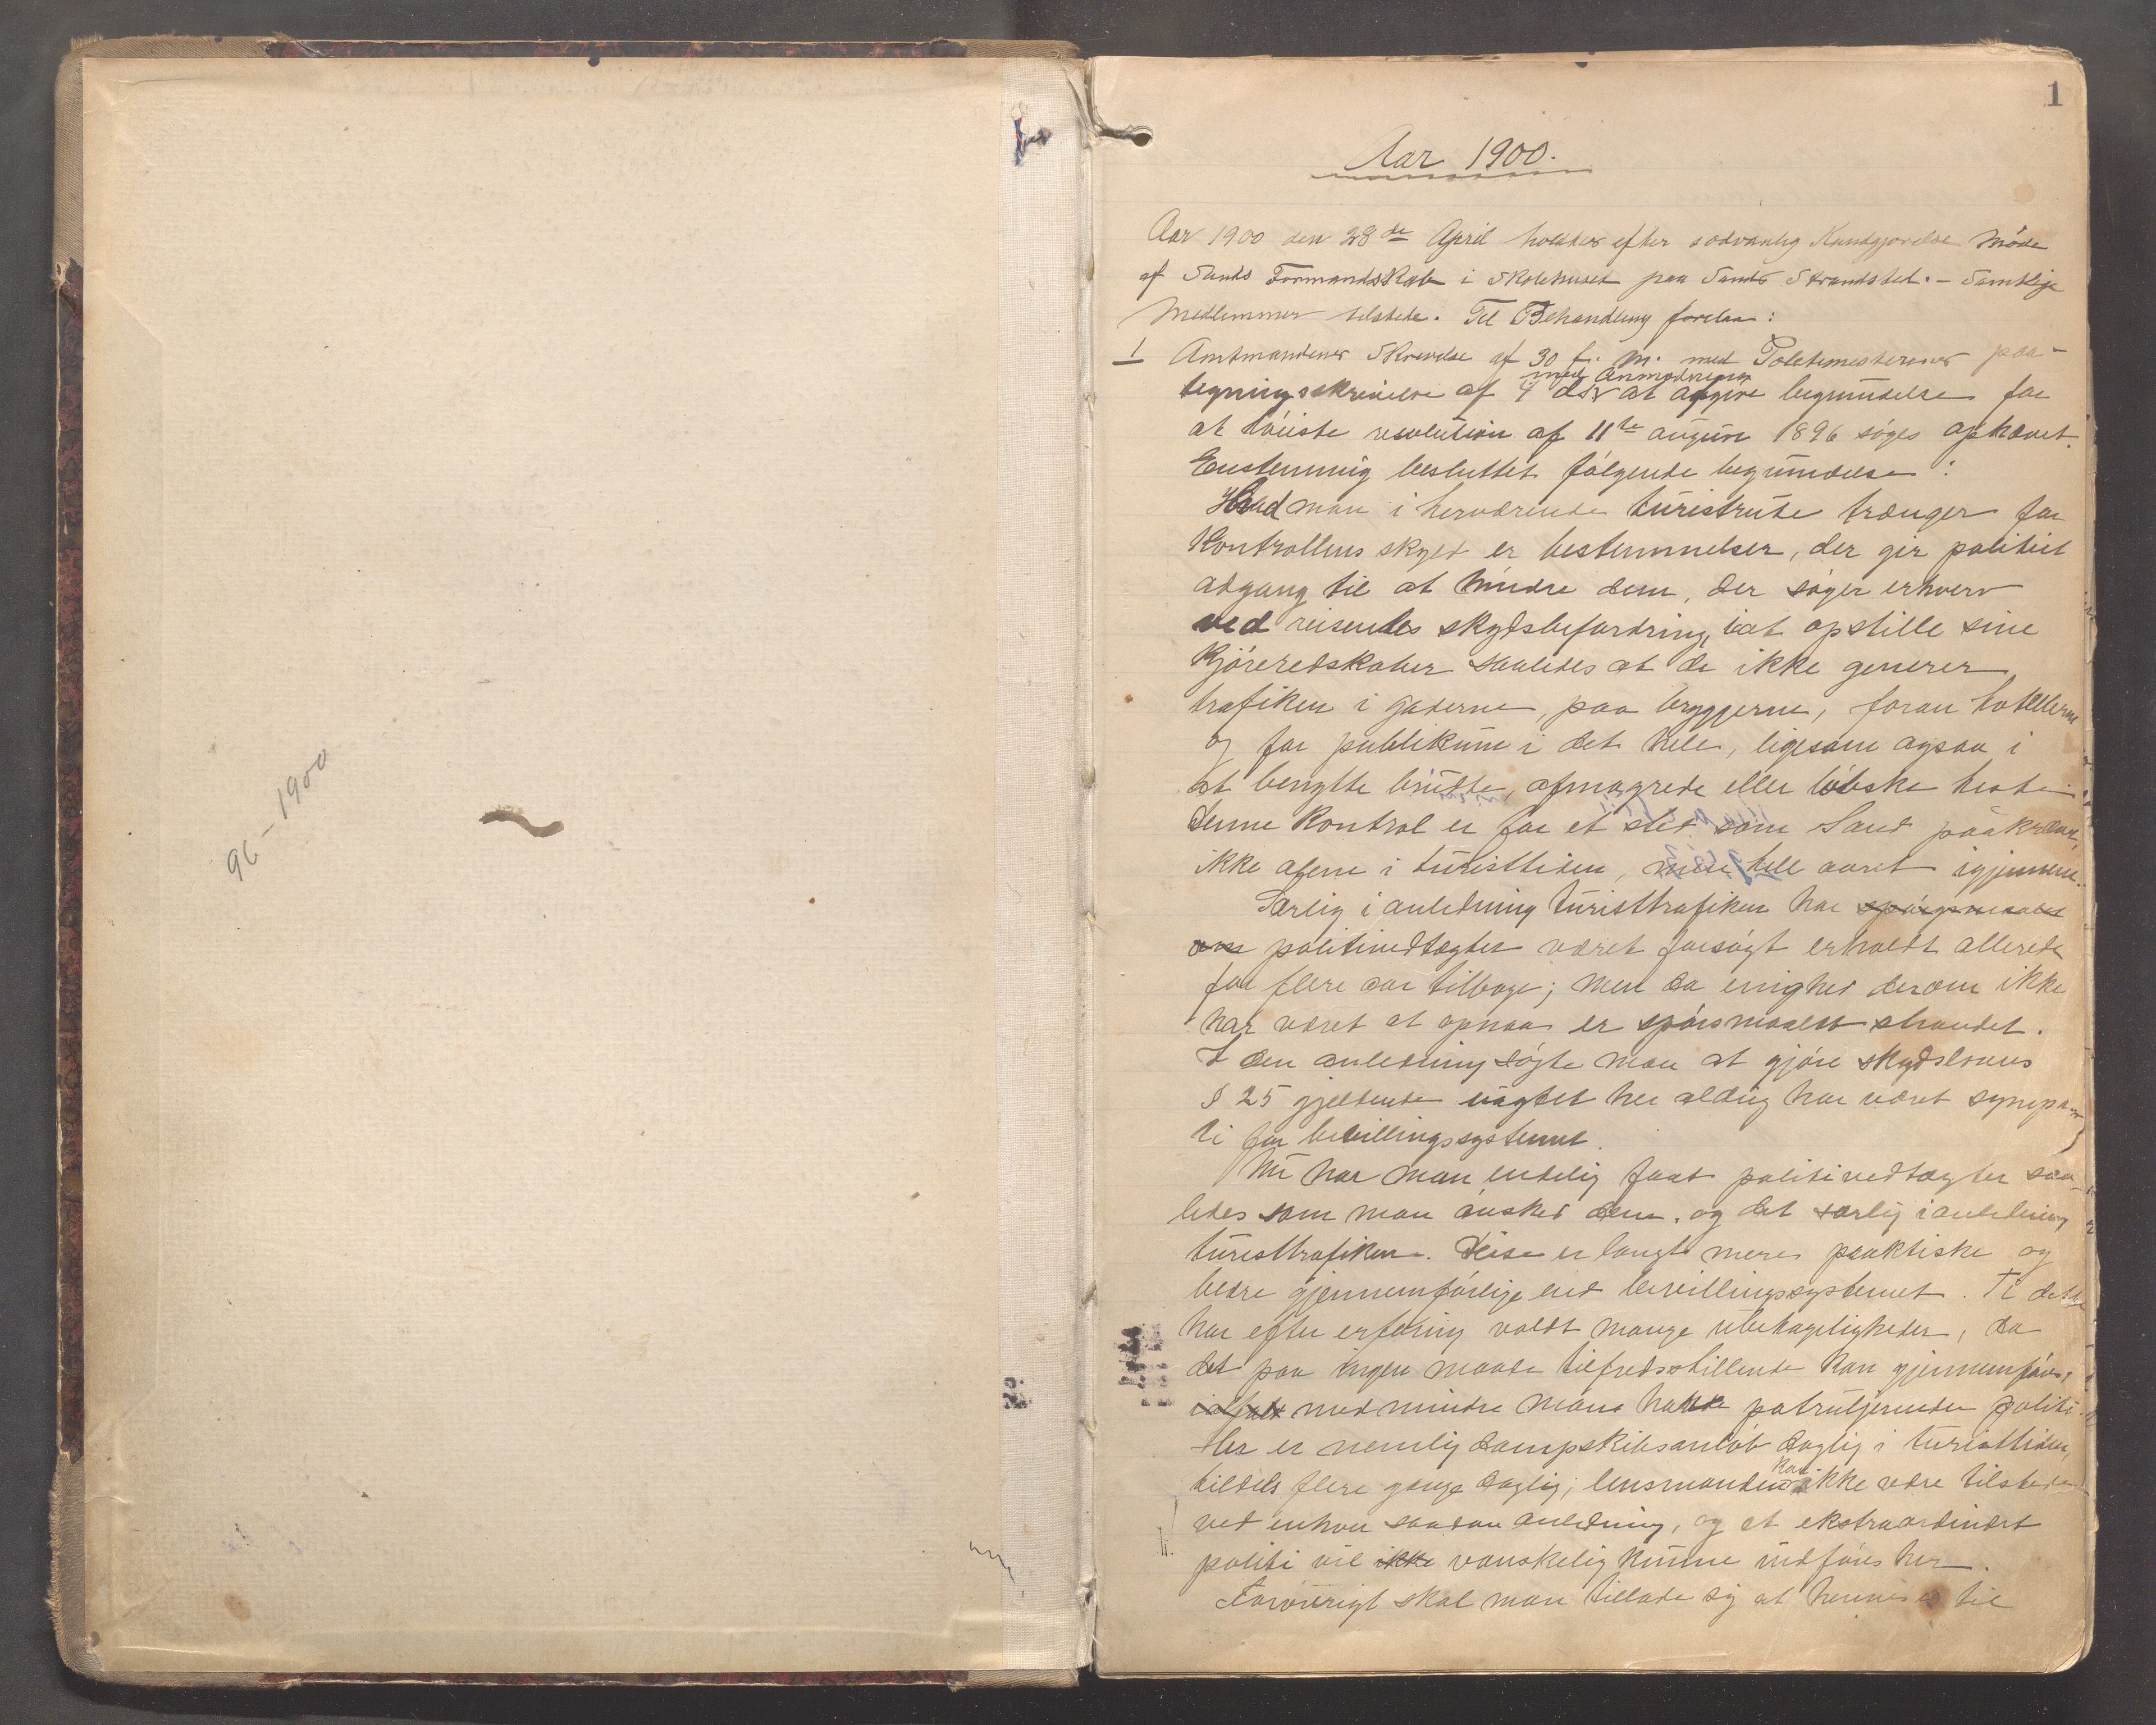 96-1900
1
Aar 1900.
Aar 1900 den 28de April holdtes efter sedvanlig Kundgjørelse Møde
af Sands Formandskab i Skolehuset paa Sands Strandsted. - Samtlige
Medlemmer tilstede. Til Behandling forelaa:
1 Amtmandens Skrivelse af 30 f. M. med Politimesterens paa-
med Anmodning om
tegningsskrivelse af 4 ds at afgive begrundelse for
at høieste resolution af 11te august 1896 søges ophævet.
Enstemmig besluttet følgende begrundelse:
Hvad man i herværende turistrute trænger for
Kontrollens skyld er bestemmelser, der gir politiet
adgang til at hindre dem, der søger erhverv
ved reisendes skydsbefordring, i at opstille sine
Kjøreredskaber saaledes at de ikke generer
trafiken i gaderne, paa bryggerne, foran hotellerne
og for publikum i det hele, ligesom ogsaa i
at benytte brudte, afmagrede eller løbske heste.
Denne Kontrol er for et sted som Sand paakrævet,
ikke alene i turisttiden, men hele aaret igjennem.
Særlig i anledning turisttrafiken har spørgsmaalet
om politivedtægter været forsøgt erholdt allerede
for flere aar tilbage; men da enighed derom ikke
har været at opnaa er spørsmaalet strandet.
I den anledning søgte man at gjøre skydslovens
§ 25 gjeldende uagtet her aldrig har været sympa-
ti for bevillingssystemet.
Nu har man endelig faat politivedtægter saa-
ledes som man ønsked dem, og det særlig i anledning
turisttrafiken. Disse er langt mere praktiske og
bedre gjennemførlige end bevillingssystemet. Ti dette
har efter erfaring voldt mange ubehageligheder, da
det paa ingen maade tilfredsstillende kan gjennemføres,
ialfald medmindre man havde patruljerende politi.
Her er nemlig dampskibsanløb daglig i turisttiden,
kan
tildels flere gange daglig; lensmanden ikke være tilstede
ved enhver saadan anledning, og et ekstraordinært
politi vil ikke vanskelig kunne indføres her.
Forøvrigt skal man tillade sig at henvise til